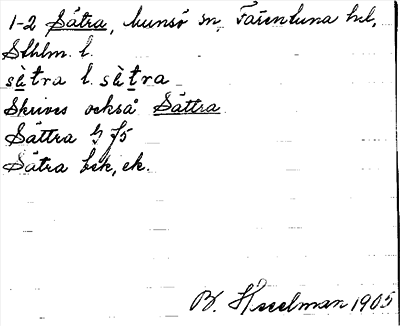 1-2 Sätra, hunsö sn, Färentuna hd,
Sthlm. l.
sètra l. sètra
Skrives också Sättra
Sättra G f5
Sätra bek, ek.
B. Hesselman 1905